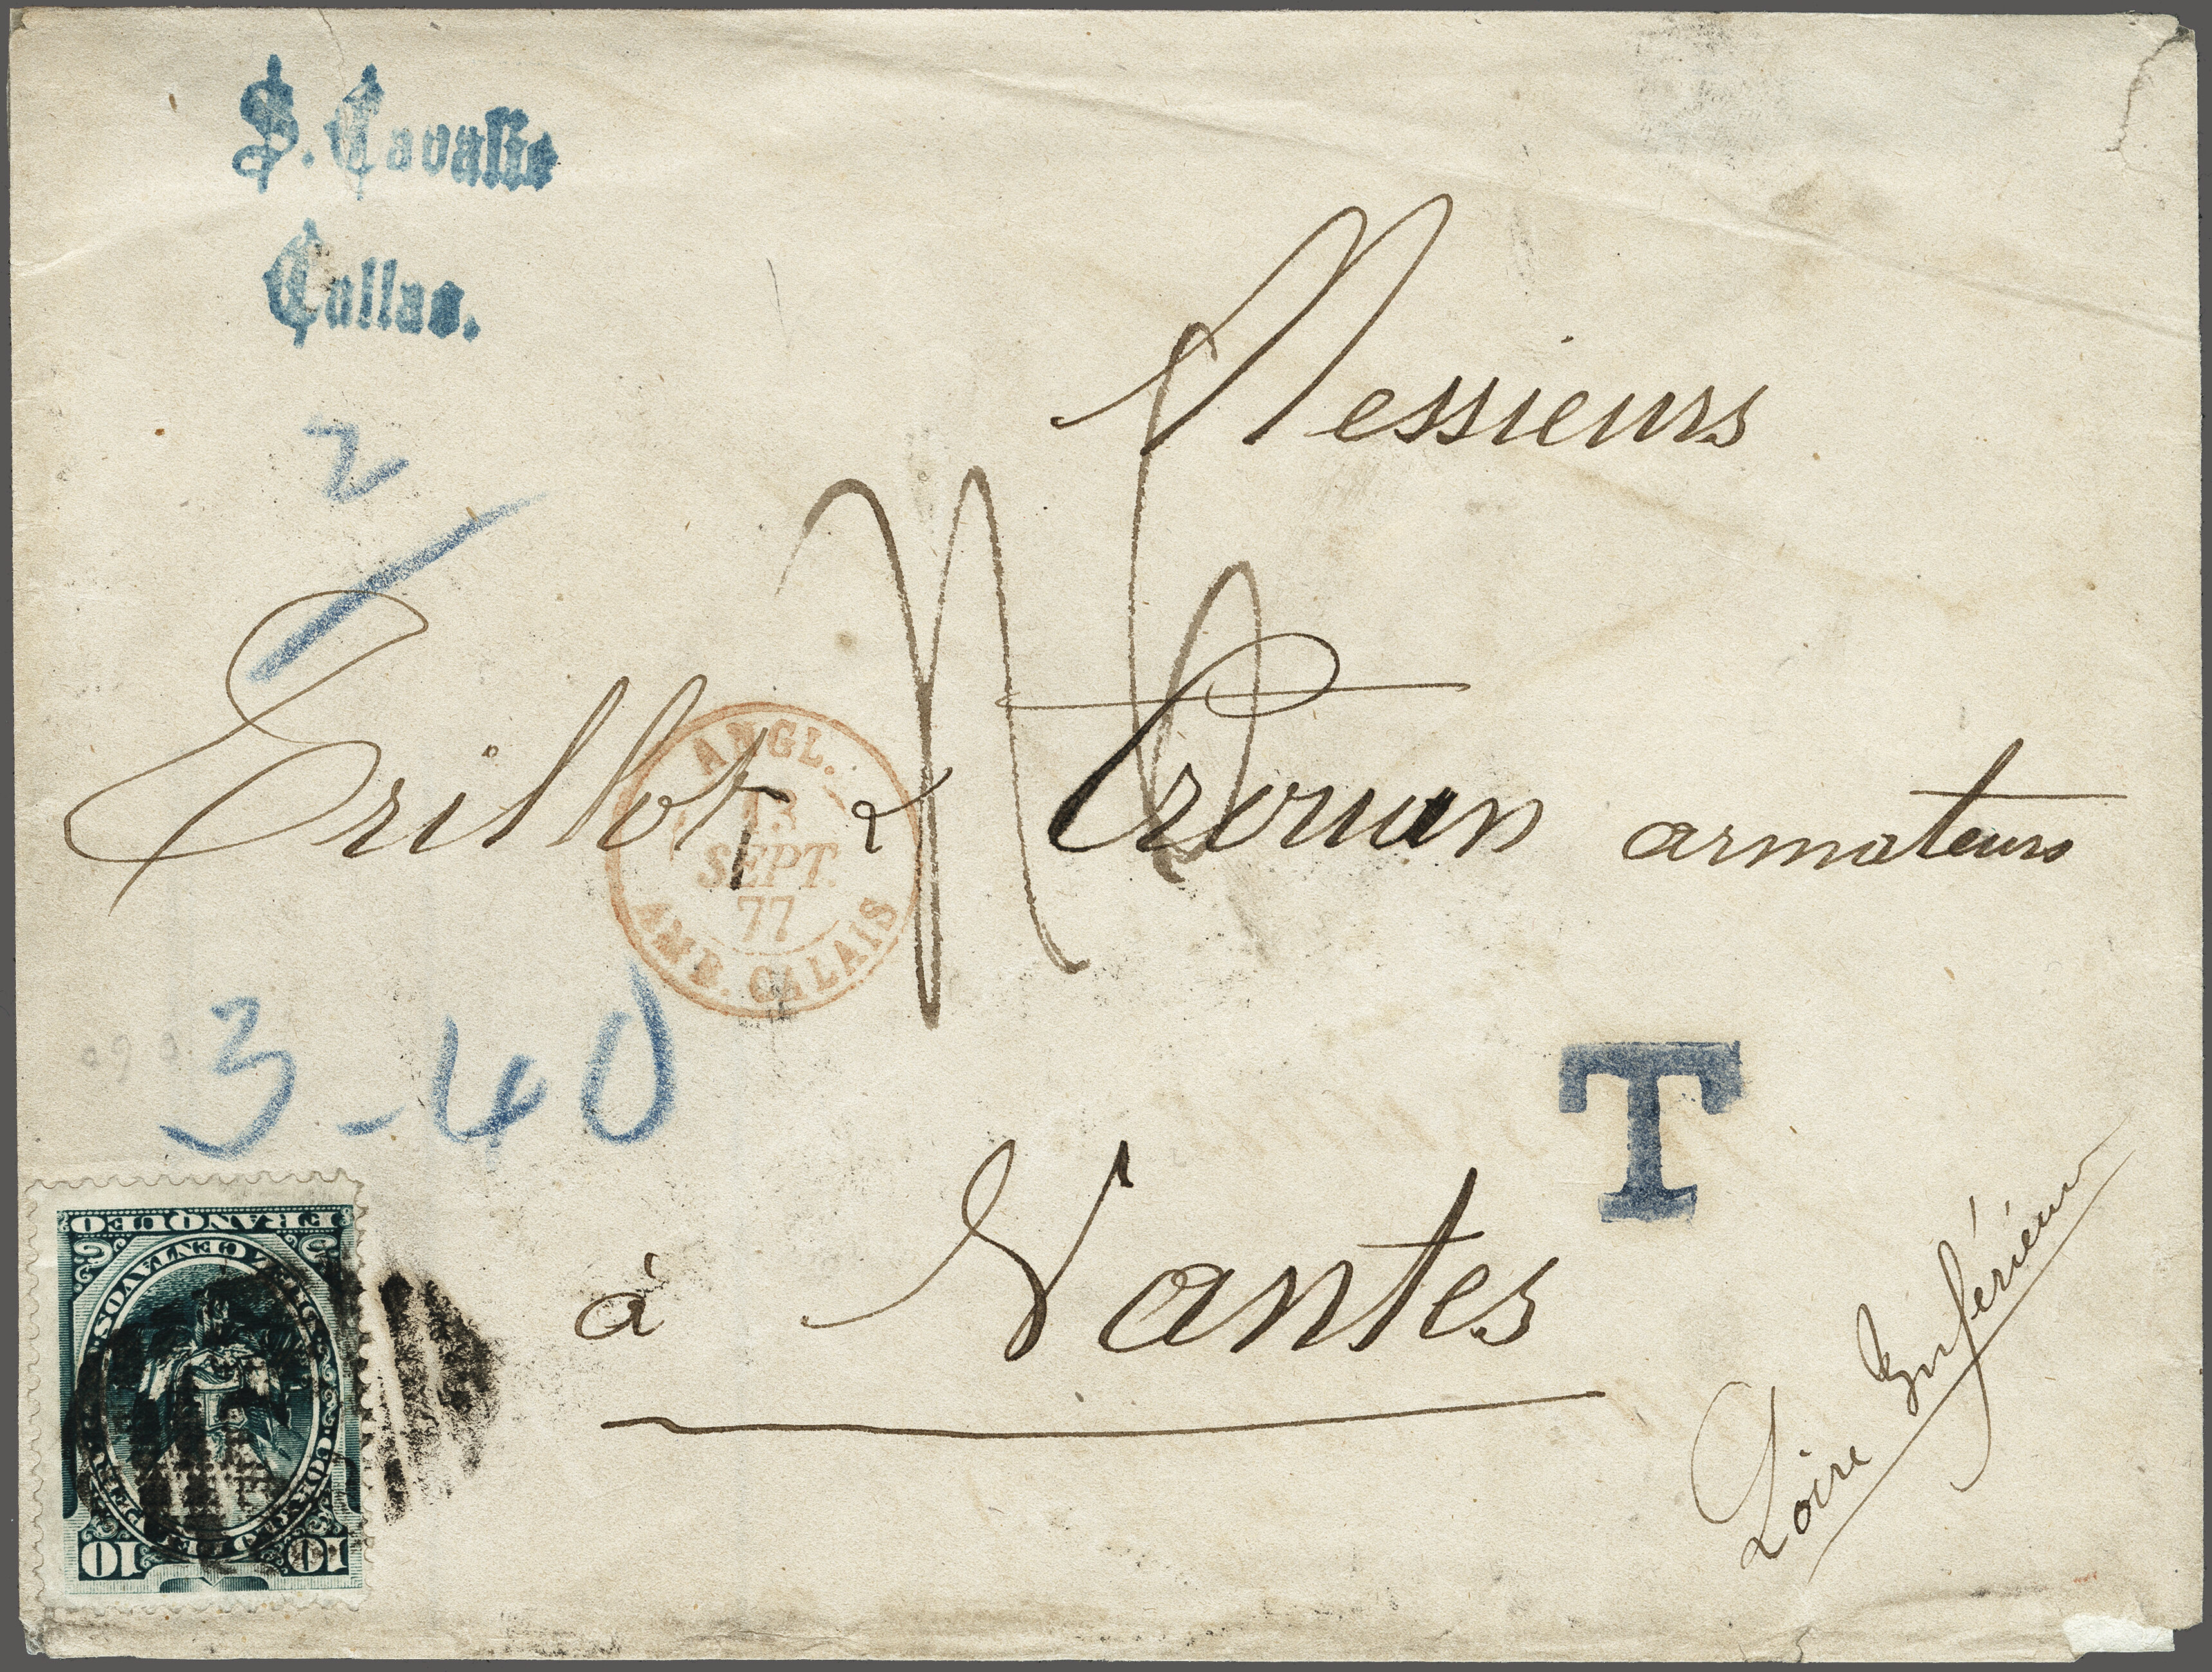 S. Cavalie
Callao.
2
Messieurs
Trillot & Crouan armateurs
ANGL.
13
SEPT.
77
AMB. CALAIS
3-40
T
à Nantes
Loire Inférieure
FRANQUEO
DIEZ CENTAVOS
CORREO DEL PERU
10 10